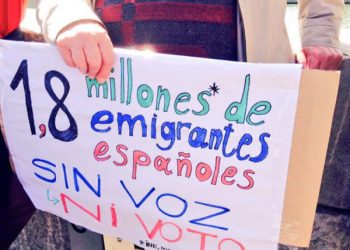 1,8 millones* de
emigrantes
españoles
SIN VOZ
NI VOTO